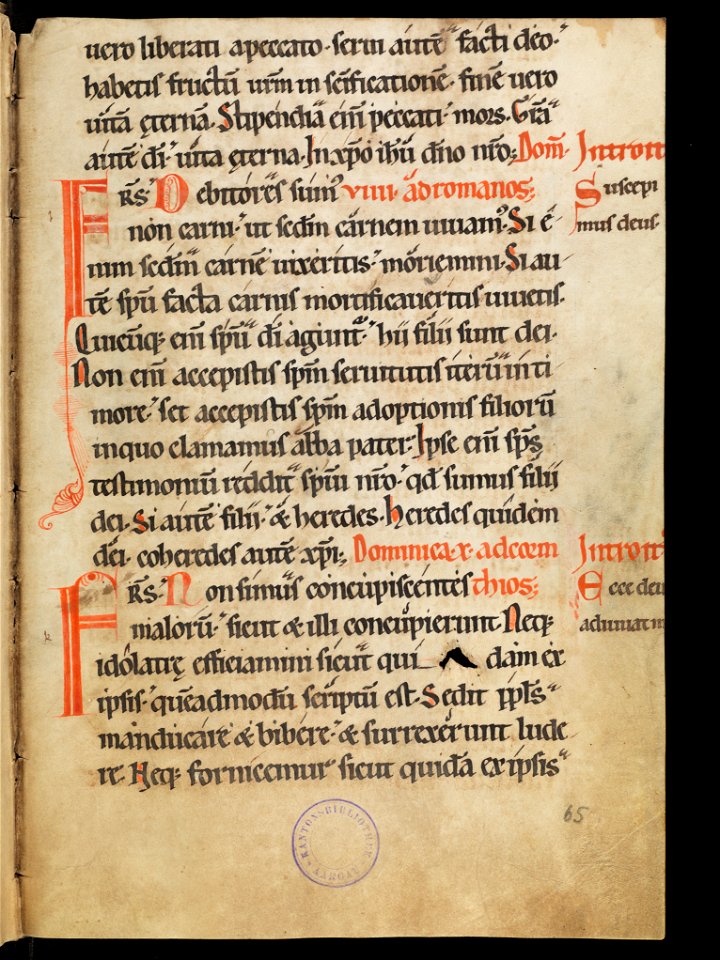 uero liberati a peccato· serui autē facti deo·
habetis fructū urm̄ in sc̄ificationē· finē uero
uitā ęternā. Stipendia em̄ peccati mors. Grā
autē dī uita ęterna· In xp̄o ih̄u dn̄o nr̄o; Dom̄ Introit
FRS̄· Debitores sum᷒ viii· ad romanos; Suscepi
non carni· ut scdm̄ carnem uiuam᷒. Si e mus deus·
nim scdm̄ carnē uixeritis· moriemini. Si au
tē spū facta carnis mortificaueritis uiuetis.
Quicūq; em̄ spū dī agunt᷒· hii filii sunt dei·
Non em̄ accepistis spm̄ seruitutis iterū in ti
more· set accepistis spm̄ adoptionis filiorū
in quo clamamus abba pater. Ipse em̄ sps̄
testimoniū reddit spūi nr̄o· qd̄ sumus filii
dei. Si autē filii· & heredes. heredes quidem
dei· coheredes autē xp̄i; Dominica·x· ad corin Introit᷒
FRS̄· Non simus concupiscentes thios; Ecce deu
malorū· sicut & illi concupierunt. Neq; adiuuat m
idolatrę efficiamini sicut qui dam ex
ipsis· quēadmodū scriptū est. Sedit ppl̄s
manducare & bibere· & surrexerunt lude
re. Neq; fornicemur sicut quidā ex ipsis
65
KANTONSBIBLIOTHEK AARGAU